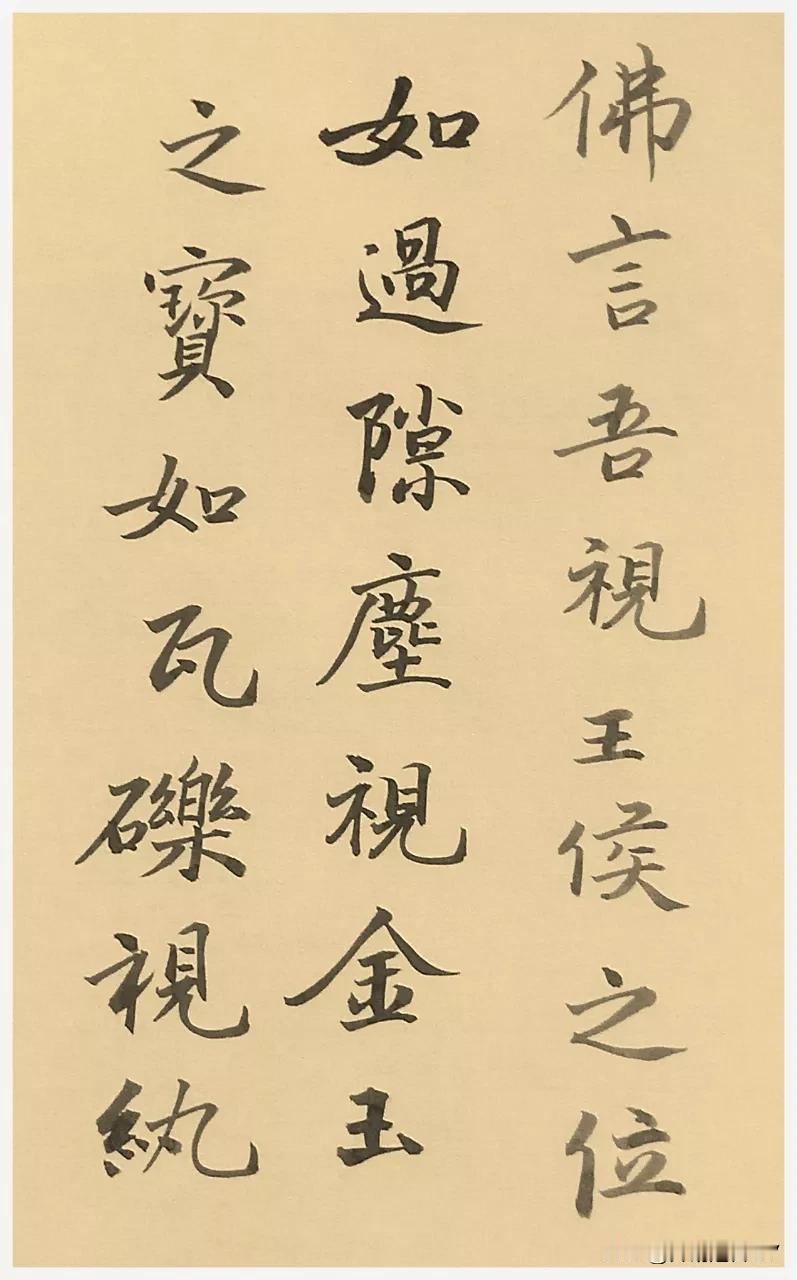 佛言吾視王侯之位
如過隙塵視金玉
之寶如瓦礫視紈